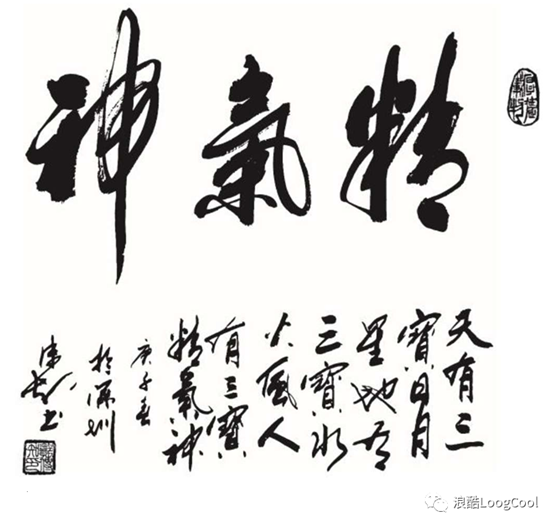 精氣神
天有三
寶日月
星地有
三寶水
火風人
有三寶
精氣神
庚子春
於深圳
书
浪酷LoogCool